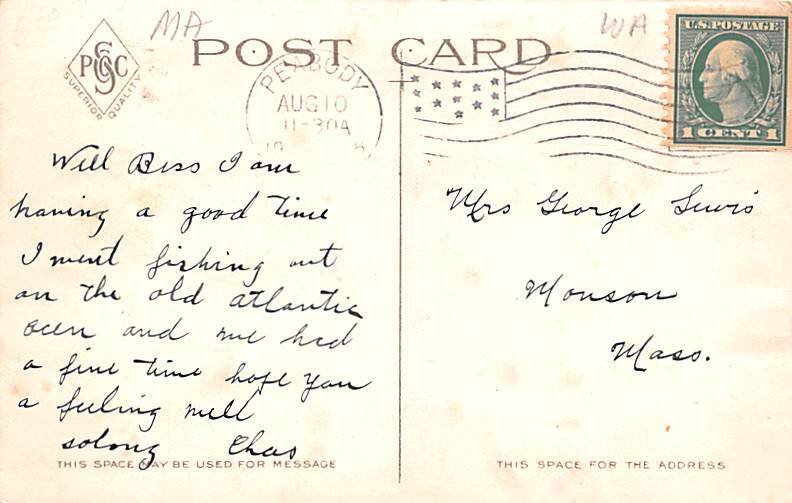 MA
WA
POST CARD
PSCC
SUPERIOR QUALITY
U.S. POSTAGE
1 CENT 1
PEABODY
AUG 10
11-30A
19
Well Bess I am
having a good time
I went fishing out
on the old atlantic
ocen and we had
a fine time hope you
a feeling well
solong Chas
THIS SPACE MAY BE USED FOR MESSAGE
Mrs George Lewis
Monson
Mass.
THIS SPACE FOR THE ADDRESS